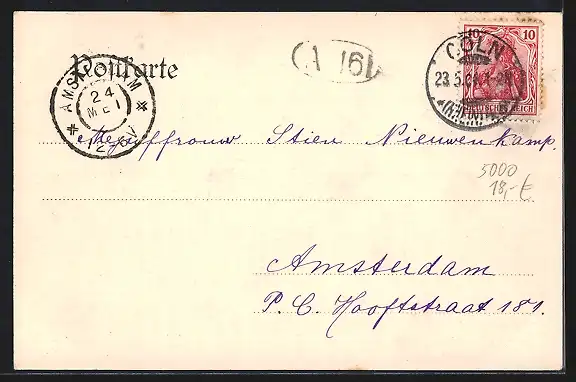 Postkarte
AMSTERDAM
24
MEI
12-6V
CÖLN
(RHEIN)
10
DEUTSCHES REICH
Mejuffrouw Stien Nieuwenkamp.
5000
18,- €
Amsterdam
P. C. Hooftstraat 181.